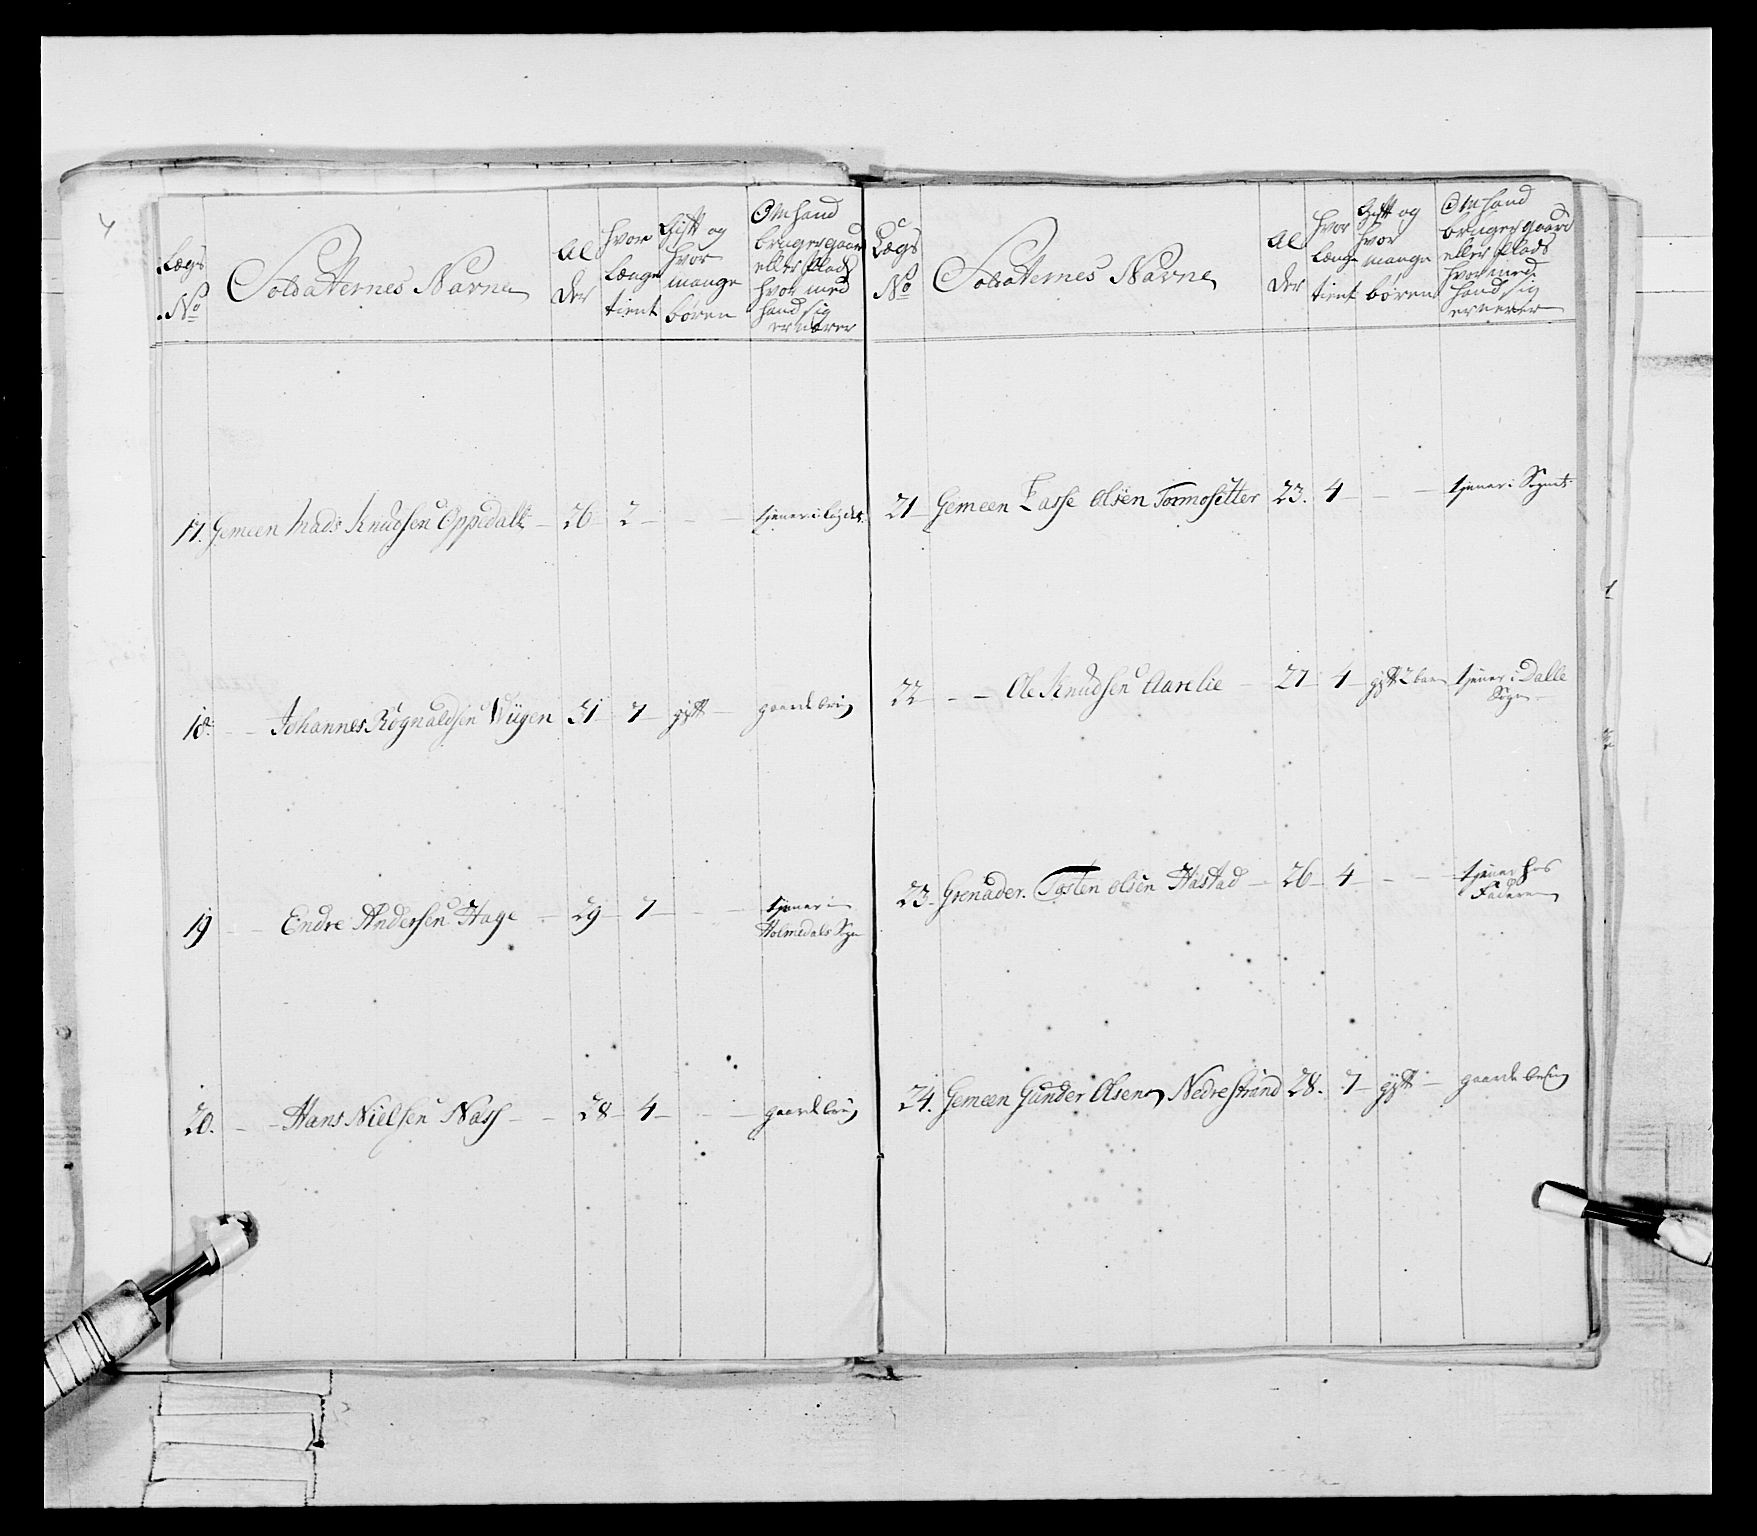 Lægs No
Soldatternes Navne
Alder
hvor længe tient
Gift og hvor mange bören
Om hand bruger gaard eller Plads hvor med hand sig ernærer
17. Gemeen Mads Knudsen Oppedahl – 26 2 – – tjener i
18. – – Johannes Rognaldsen Wiigen 31 7 – gift – gaardebrug
19 – – Endre Andersen Hage – 29 – 7 – – tjener i
Holmedals Sogn
20. – – Hans Nielsen Næss – – 28 – 4 – – gaardebrug
Lægs No
Soldatternes Navne
Alder
hvor længe tient
Gift og hvor mange bören
Om hand bruger gaard eller Plads hvor med hand sig ernerer
21 – Gemeen Lasse Olsen Tormosetter 23. 4 – – – tjener i Sognet
22 – – – Ole Knudsen Aarelie – 27 – 4 – gift 2 barn tjener i Dalle
Sogn –
23 – Grenader. Tosten Olsen Hastad – 26 – 4 – – – tjener hos
Faderen
24. Gemeen Gunder Olsen Nedrestrand 28. 7 – gift – gaardebrug